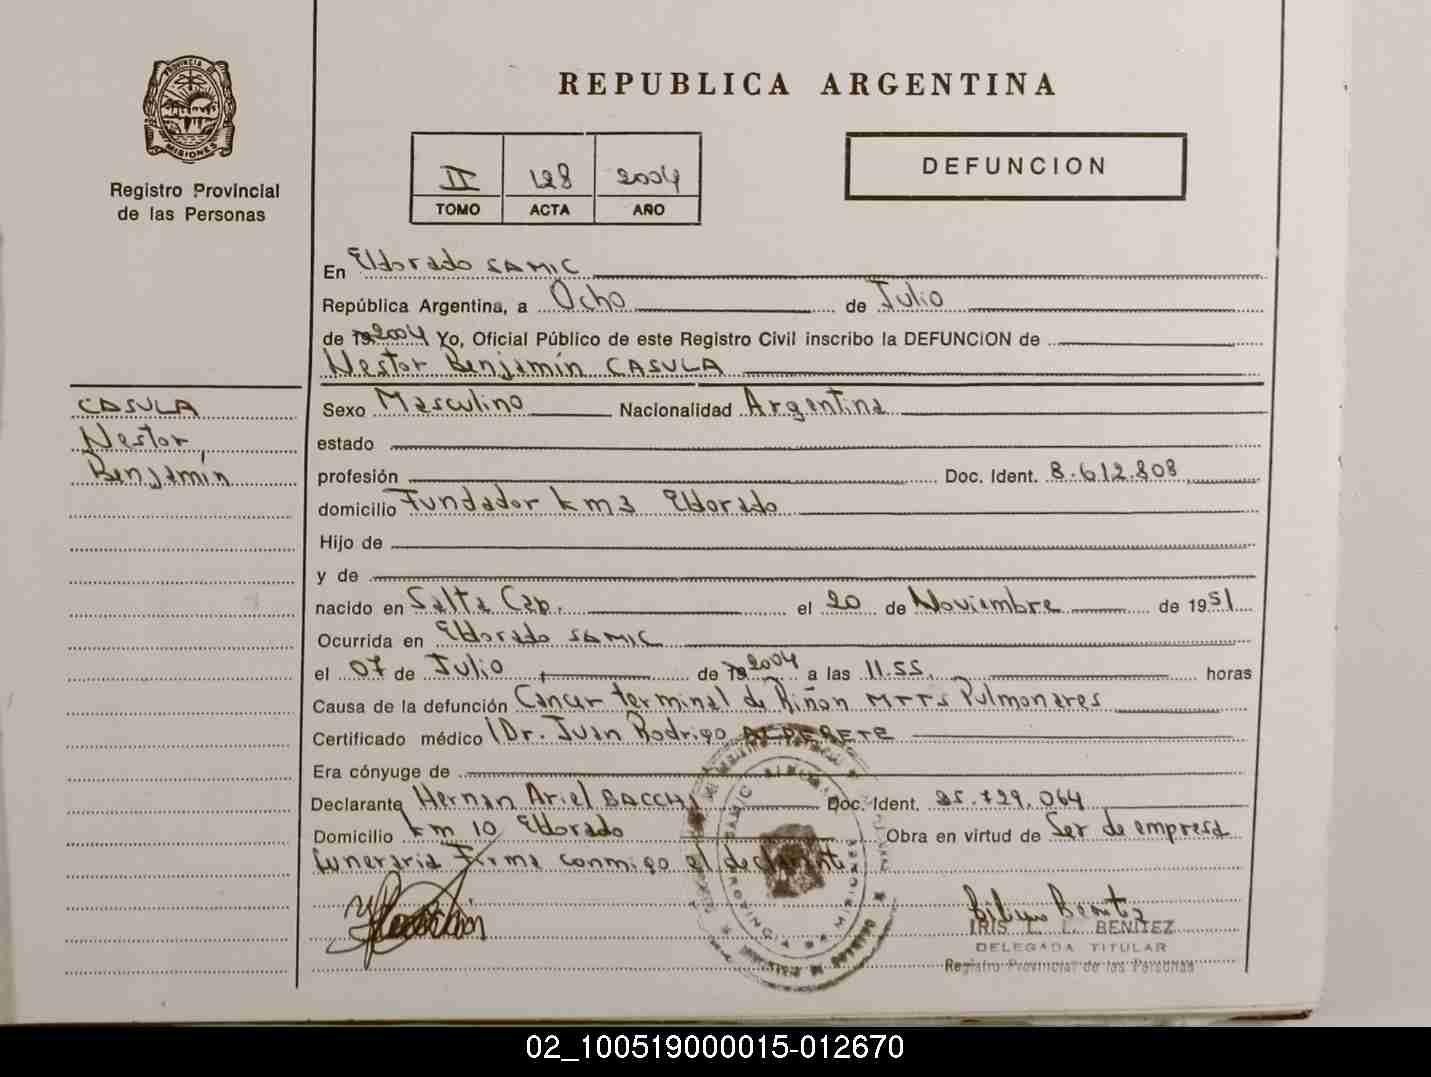 REPUBLICA ARGENTINA
PROVINCIA DE
MISIONES
Registro Provincial
de las Personas
II 128 2004
TOMO ACTA AÑO
DEFUNCION
En Eldorado SAMIC
República Argentina, a Ocho de Julio
de 2004 Yo, Oficial Público de este Registro Civil inscribo la DEFUNCION de
Nestor Benjamín CASULA
CASULA
Nestor
Benjamín
Sexo Masculino Nacionalidad Argentina
estado
profesión Doc. Ident. 8.612.808
domicilio Fundador km 3 Eldorado
Hijo de
y de
nacido en Salta Cap. el 20 de Noviembre de 1951
Ocurrida en Eldorado SAMIC
el 07 de Julio de 2004 a las 11.55. horas
Causa de la defunción Cancer terminal de Riñon MTTS Pulmonares
Certificado médico Dr. Juan Rodrigo
Era cónyuge de
Declarante Hernan Ariel BACCHI Doc. Ident. 25.729.064
Domicilio km 10 Eldorado Obra en virtud de Ser de empresa
funeraria Firma conmigo el declarante
SAMIC
PROVINCIA DE MISIONES
IRIS L. L. BENITEZ
DELEGADA TITULAR
Registro Provincial de las Personas
02_100519000015-012670